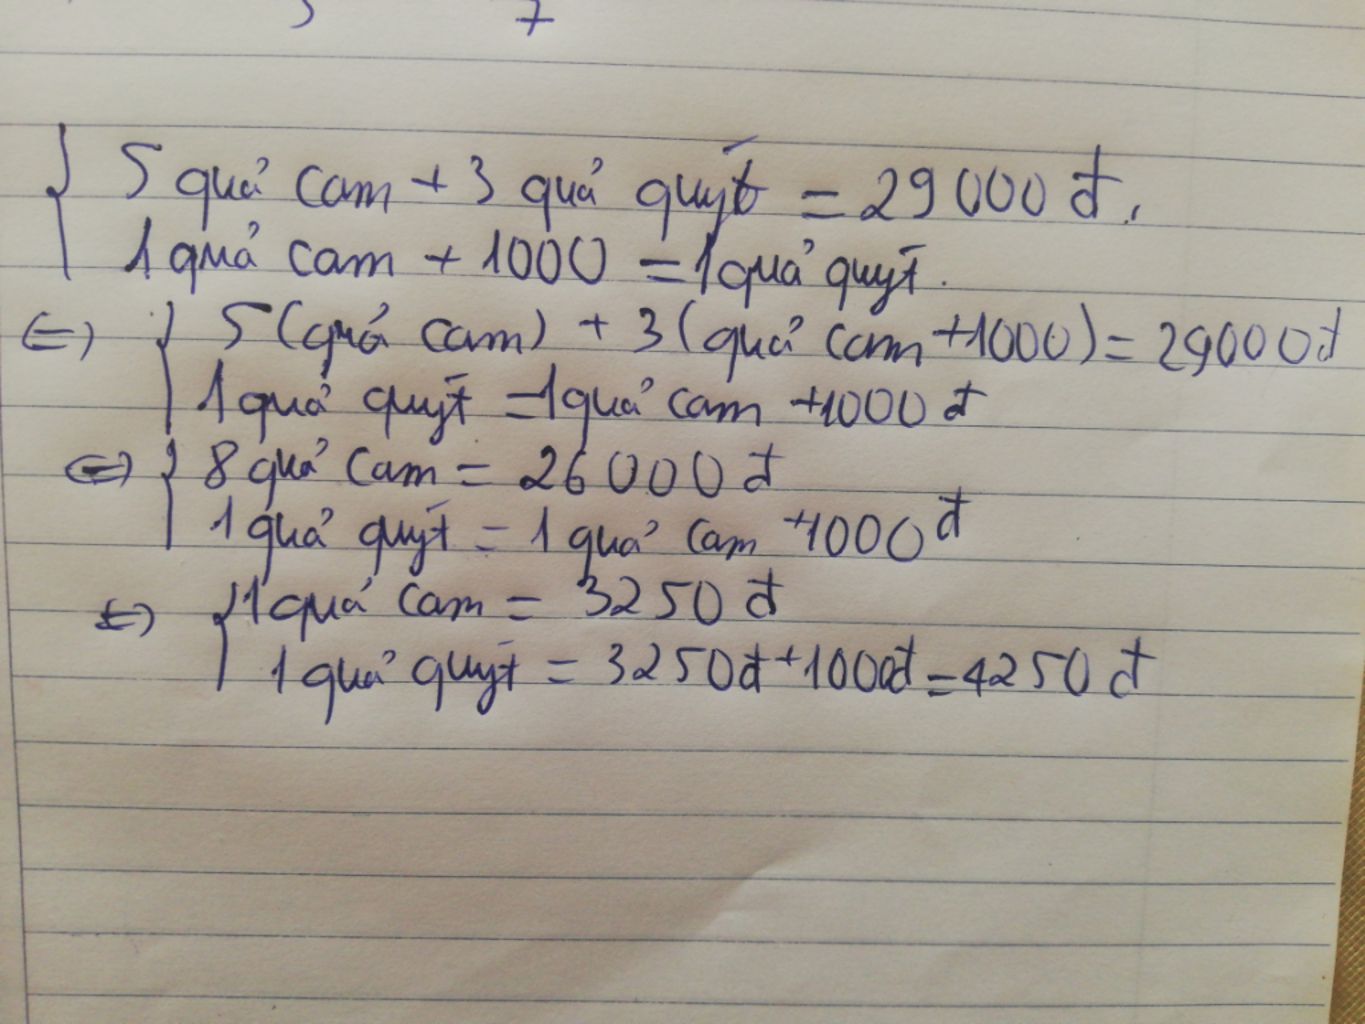 7
5 quả cam + 3 quả quýt = 29000 đ.
1 quả cam + 1000 = 1 quả quýt.
⇔ 5 (quả cam) + 3 (quả cam +1000) = 29000đ
1 quả quýt = 1 quả cam +1000 đ
⇔ 8 quả cam = 26000 đ
1 quả quýt = 1 quả cam +1000 đ
⇔ 1 quả cam = 3250 đ
1 quả quýt = 3250đ +1000đ = 4250 đ